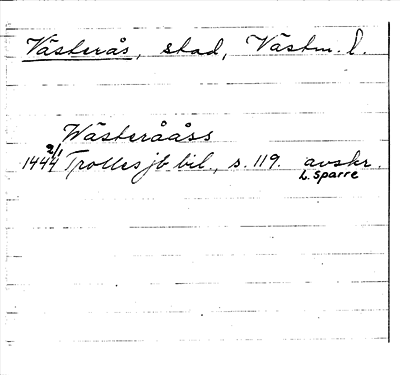 Västerås, stad, Västm. l.
Wästerååss
1444 2/1 Trolles jb bil., s. 119. avskr.
L. Sparre